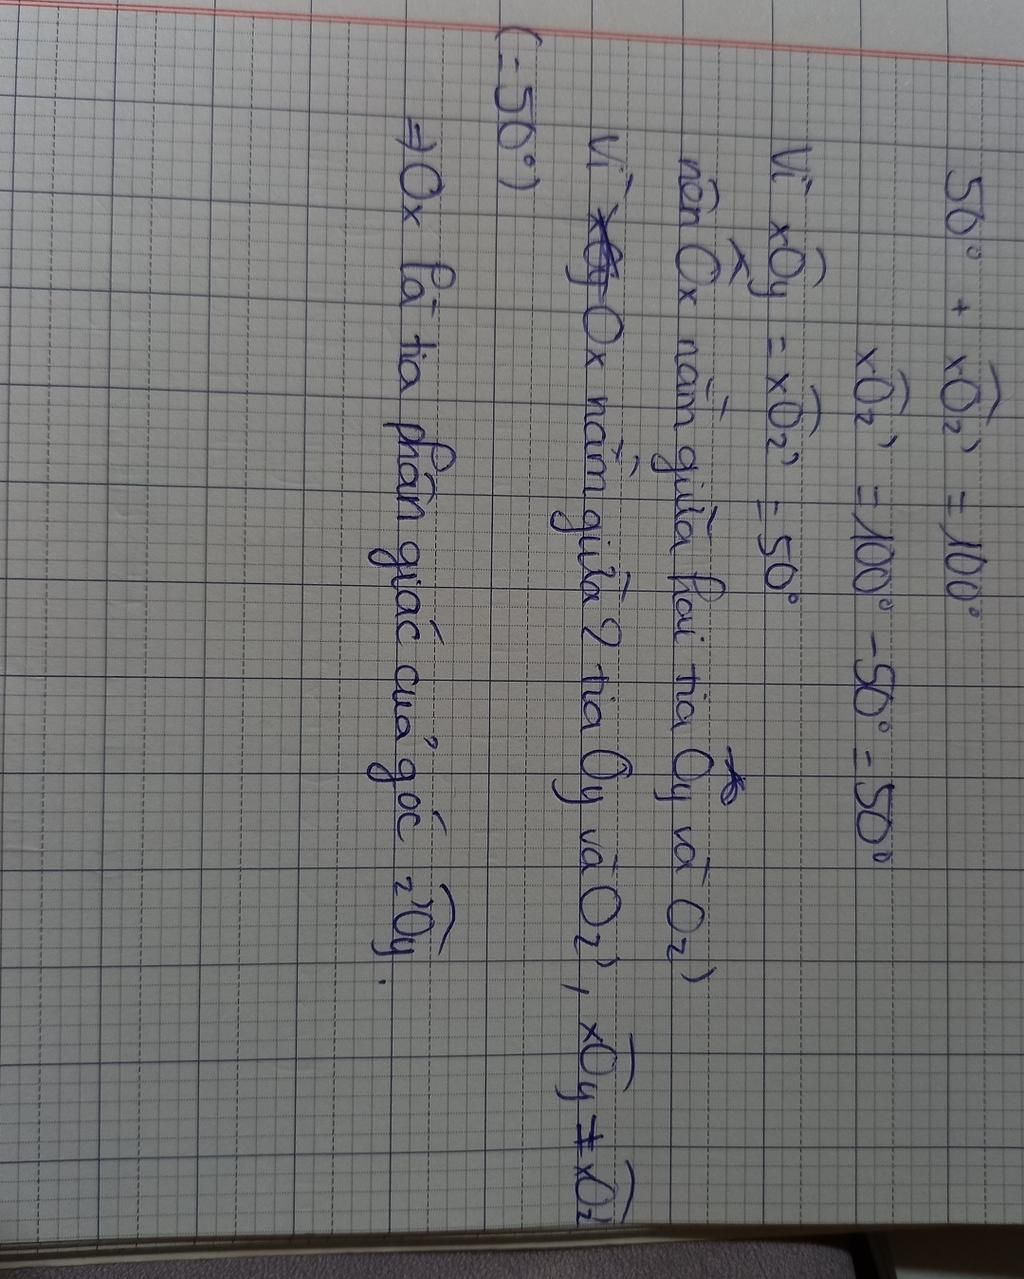 50° + xOz' = 100°
xOz' = 100° - 50° = 50°
Vì xOy = xOz' = 50°
nên Ox nằm giữa hai tia Oy và Oz'
Vì Ox nằm giữa 2 tia Oy và Oz', xOy = xOz'
(= 50°)
=> Ox là tia phân giác của góc z'Oy.